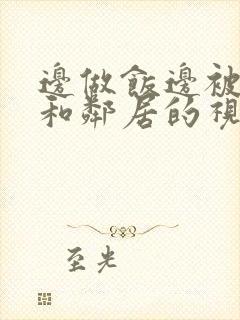 邊做飯邊被
和鄰居的視
至光